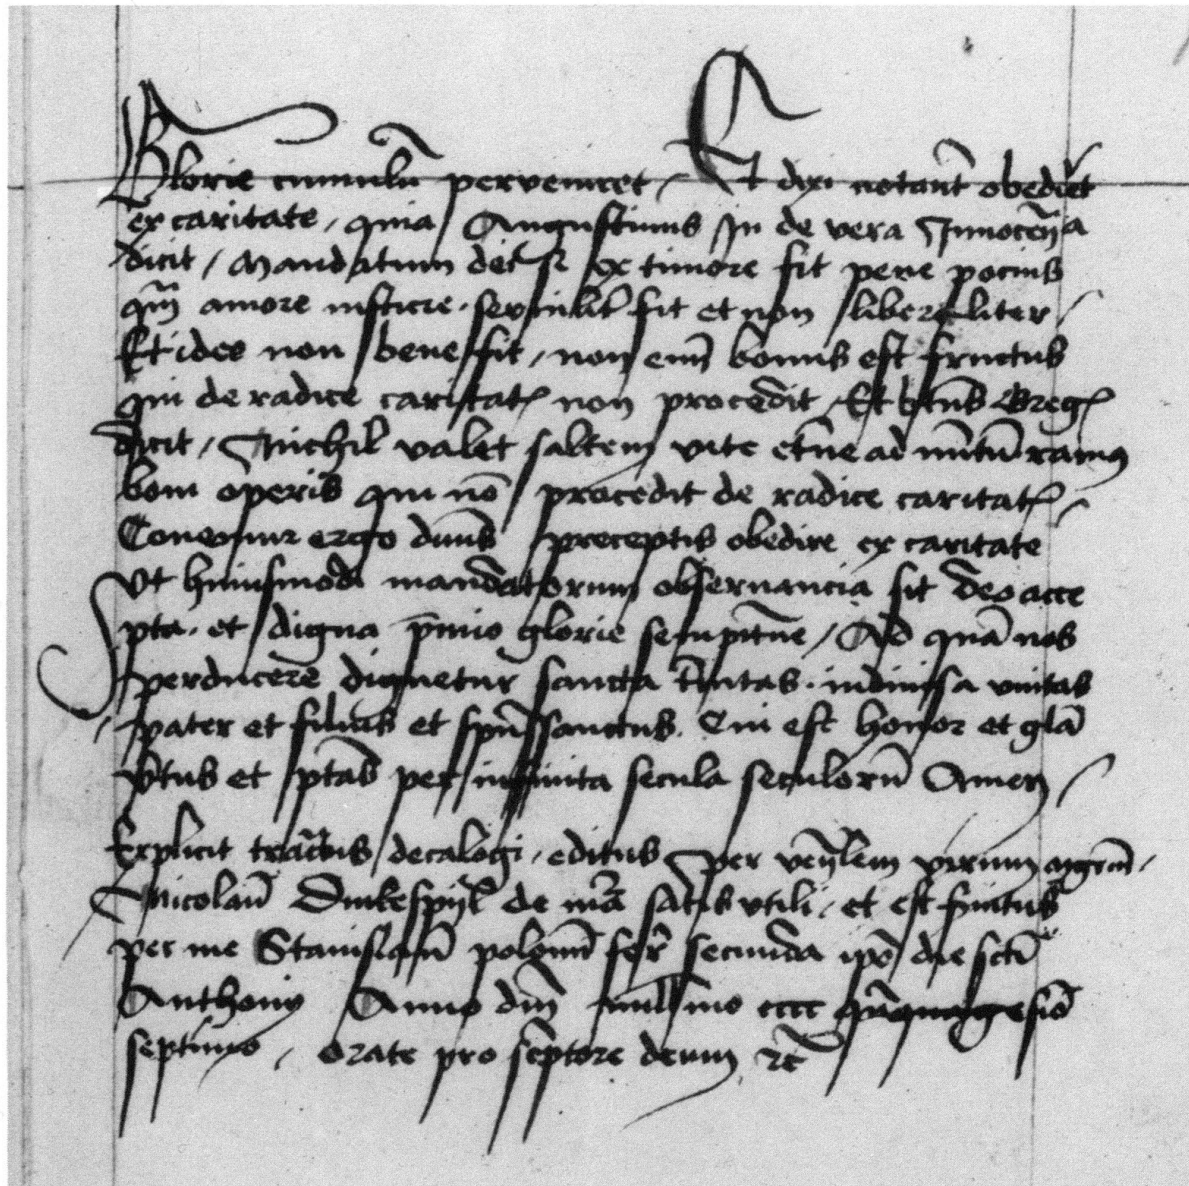 Glorie cumulū perveniret / Et dixi notant̄ obedir̄et
ex caritate / quia Augustinus In de vera Innocen̄a
dicit / Mandatum dei si ex timore fit pene pocius
qm̄ amore iusticie . servilit̄ fit et non liberaliter /
Et ideo non bene fit / non enī bonus est fructus
qui de radice caritatꝭ non procedit / Et btūs Gregꝭ
dicit / Nichil valet saltem vite etn̄e ad ramus
boni operis qui nō procedit de radice caritatꝭ /
Conemur ergo diuīs preceptis obedire ex caritate
Vt huiusmodi mandatorum obseruancia sit deo acce
pta . et digna p̄mio glorie sempitn̄e / Ad quā nos
perducere dignetur sancta tr̄nitas . indiuisa vnitas
pater et filius et spūssanctus . Cui est honor et glā
v̄tus et ptās per infinita secula seculorū Amen /
Explicit tractūs decalogi . editus per ven̄lem virum mgrm̄ .
Nicolaū Dinkespijl de mā satis vtili . et est finitus
per me Stanislaū polonū fer̄ secunda ipō die sctī
Anthonij Anno dm̄ millimo cccc qūquagesiō
septimo . orate pro sc̄ptore deum ⁊c̄